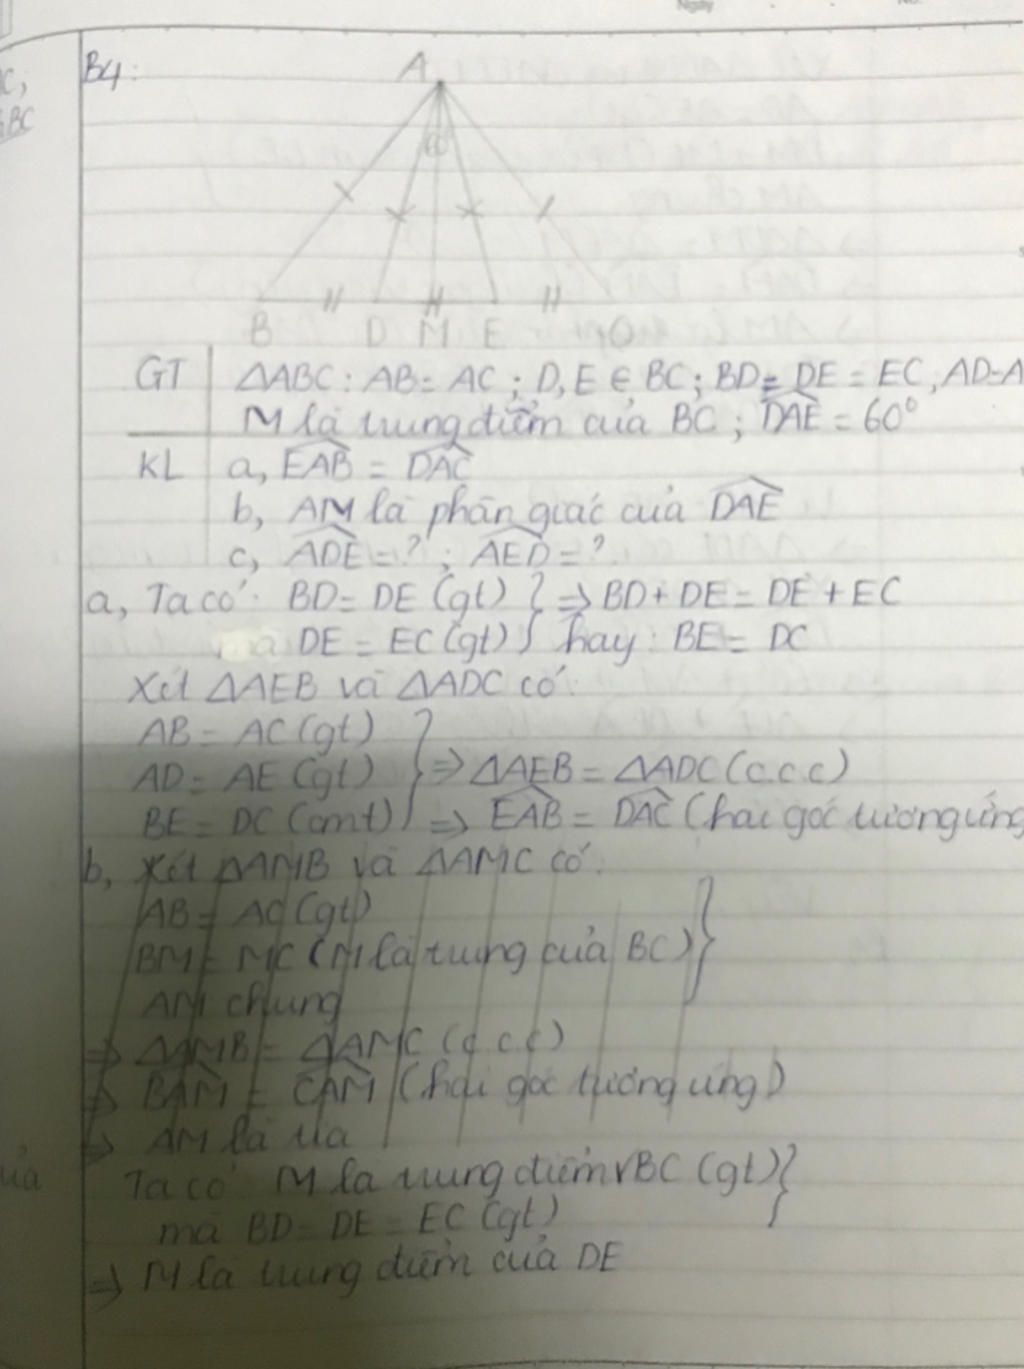 Ngày No.
C;
BC
B4:
A
B D M E C
GT ΔABC: AB = AC; D, E ∈ BC; BD = DE = EC, AD = A
M là trung điểm của BC; DAE = 60°
KL a, EAB = DAC
b, AM là phân giác của DAE
c, ADE = ?; AED = ?
a, Ta có: BD = DE (gt) } => BD + DE = DE + EC
mà DE = EC (gt) } hay: BE = DC
Xét ΔAEB và ΔADC có:
AB = AC (gt)
AD = AE (gt) } => ΔAEB = ΔADC (c.c.c)
BE = DC (cmt) => EAB = DAC (hai góc tương ứng
b, Xét ΔAMB và ΔAMC có:
AB = AC (gt)
BM = MC (M là trung của BC) }
AM chung
=> ΔAMB = ΔAMC (c.c.c)
=> BAM = CAM (hai góc tương ứng)
=> AM là tia
ủa Ta có M là trung điểm BC (gt) }
mà BD = DE = EC (gt)
=> M là trung điểm của DE